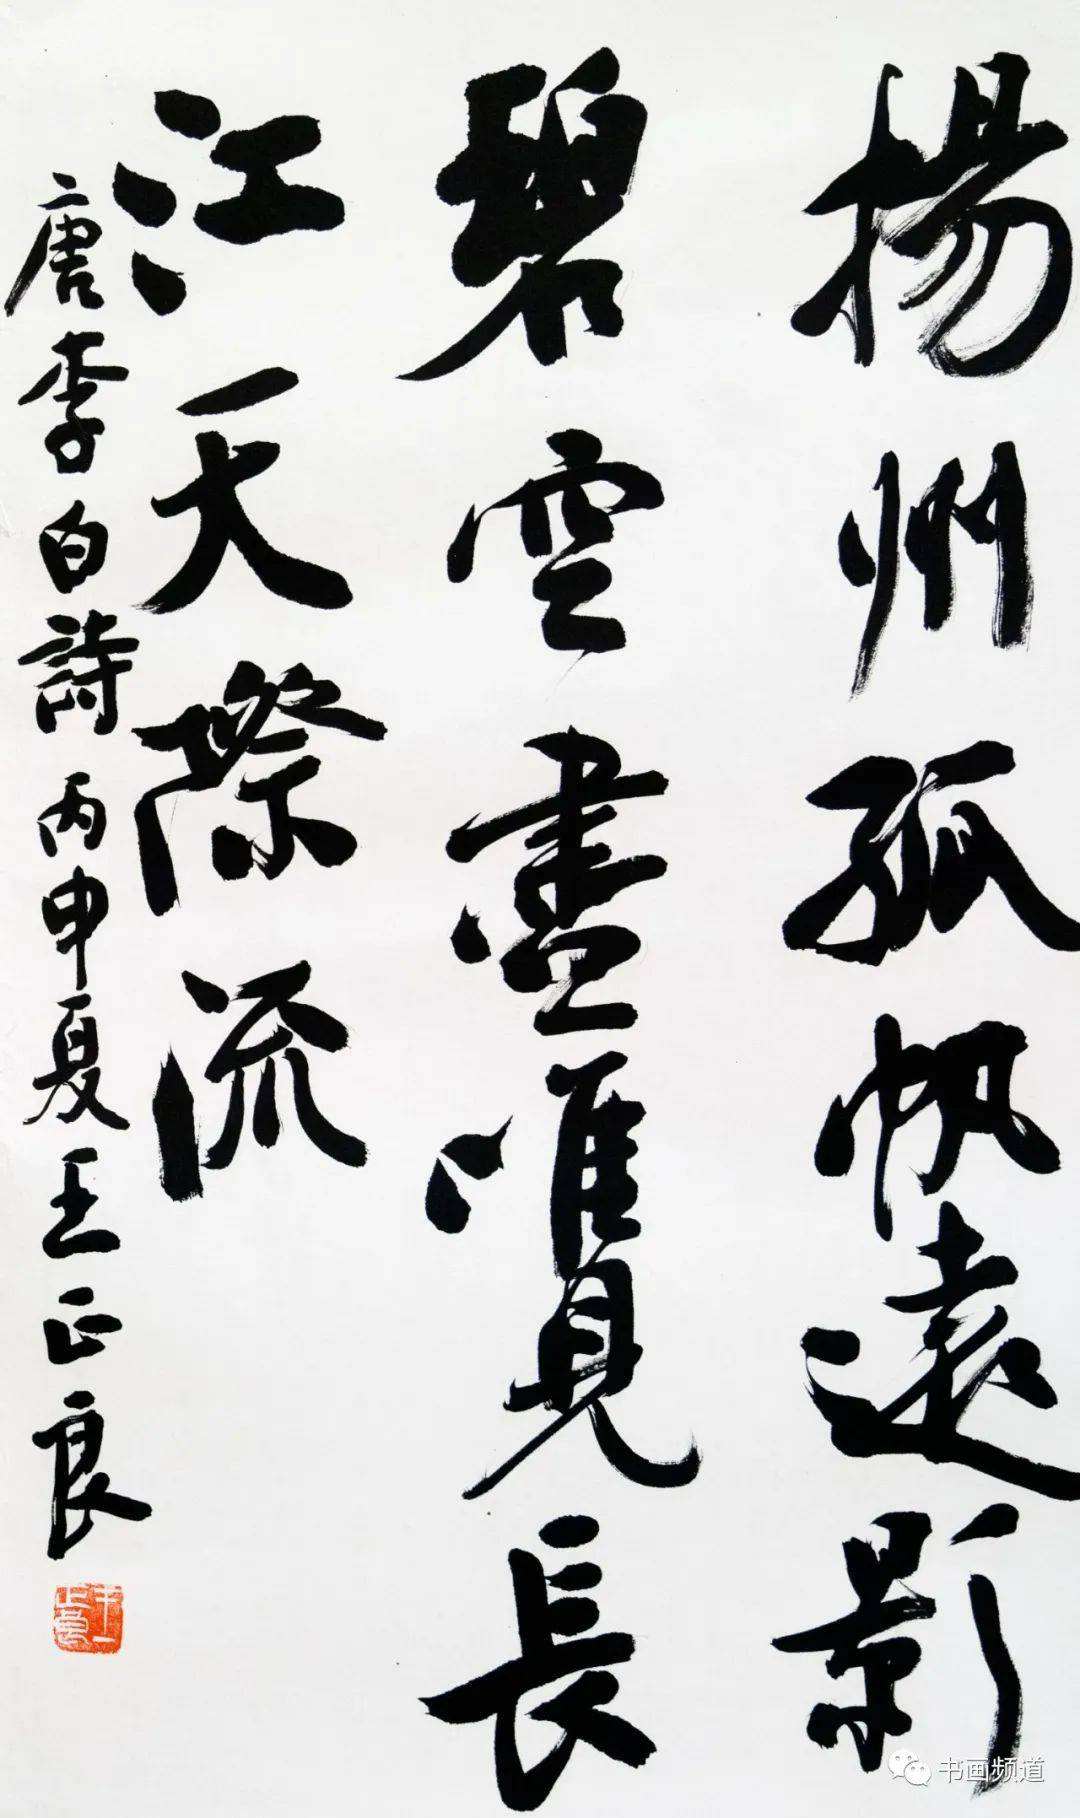 揚州孤帆遠影
碧空盡唯見長
江天際流
唐李白詩丙申夏王正良
王正良
书画频道